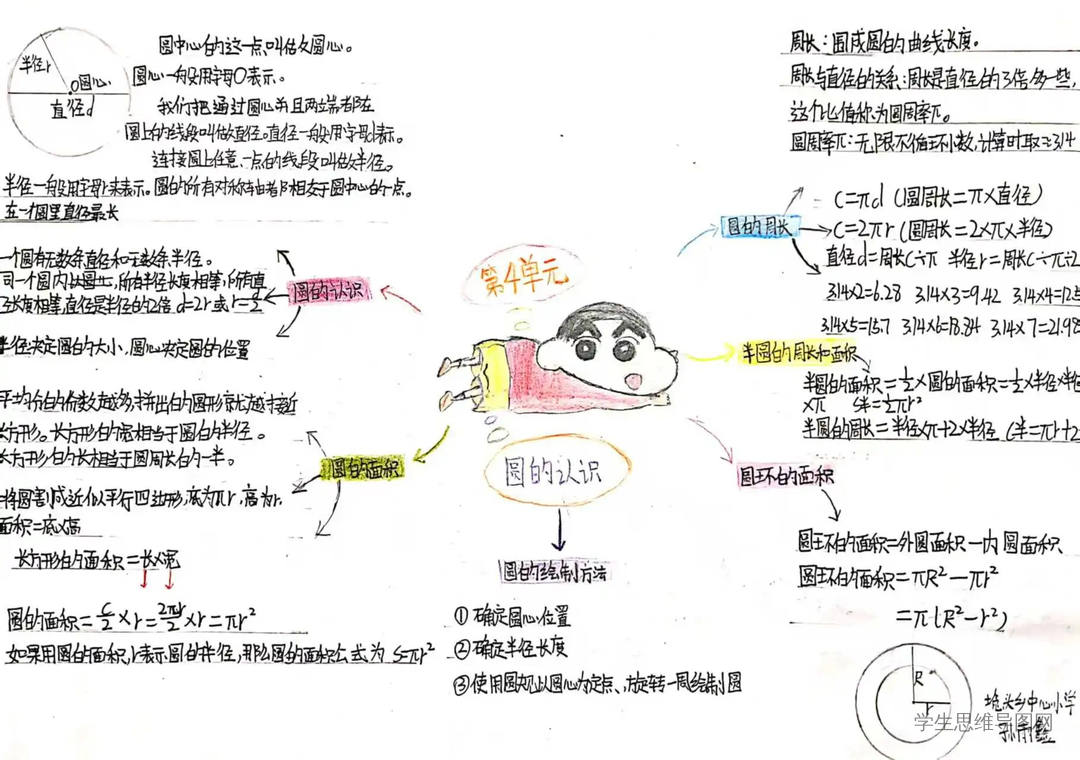 半径r
O圆心
直径d
圆中心的这一点叫做圆心。
圆心一般用字母O表示。
我们把通过圆心并且两端都在
圆上的线段叫做直径。直径一般用字母d表示。
连接圆上任意一点的线段叫做半径。
半径一般用字母r来表示。圆的所有对称轴都相交于圆中心的一点。
在一个圆里直径最长
一个圆有无数条直径和无数条半径。
同一个圆内以圆上,所有半径长度相等,所有直
径长度相等,直径是半径的2倍 d=2r 或 r=d/2
半径决定圆的大小,圆心决定圆的位置
圆的认识
平均分的份数越多,拼出的图形就越接近
长方形。长方形的宽相当于圆的半径。
长方形的长相当于圆周长的一半。
将圆割成近似平行四边形,底为πr,高为r.
面积=底×高
圆的面积
长方形的面积=长×宽
圆的面积=C/2×r=2πr/2×r=πr²
如果用圆的面积,r表示圆的半径,那么圆的面积公式为 S=πr²
第4单元
圆的认识
圆的绘制方法
① 确定圆心位置
② 确定半径长度
③ 使用圆规以圆心为定点、旋转一周绘制圆
周长:围成圆的曲线长度。
周长与直径的关系:周长是直径的3倍多一些,
这个比值称为圆周率π。
圆周率π:无限不循环小数,计算时取≈3.14
圆的周长
C=πd (圆周长=π×直径)
C=2πr (圆周长=2×π×半径)
直径d=周长C÷π 半径r=周长C÷π÷2
3.14×2=6.28 3.14×3=9.42 3.14×4=12.5
3.14×5=15.7 3.14×6=18.84 3.14×7=21.98
半圆的周长和面积
半圆的面积=1/2×圆的面积=1/2×半径×半径
×π S半=1/2πr²
半圆的周长=半径×π+2×半径 C半=πr+2
圆环的面积
圆环的面积=外圆面积-内圆面积
圆环的面积=πR²-πr²
=π(R²-r²)
R
r
中心小学
学生思维导图网